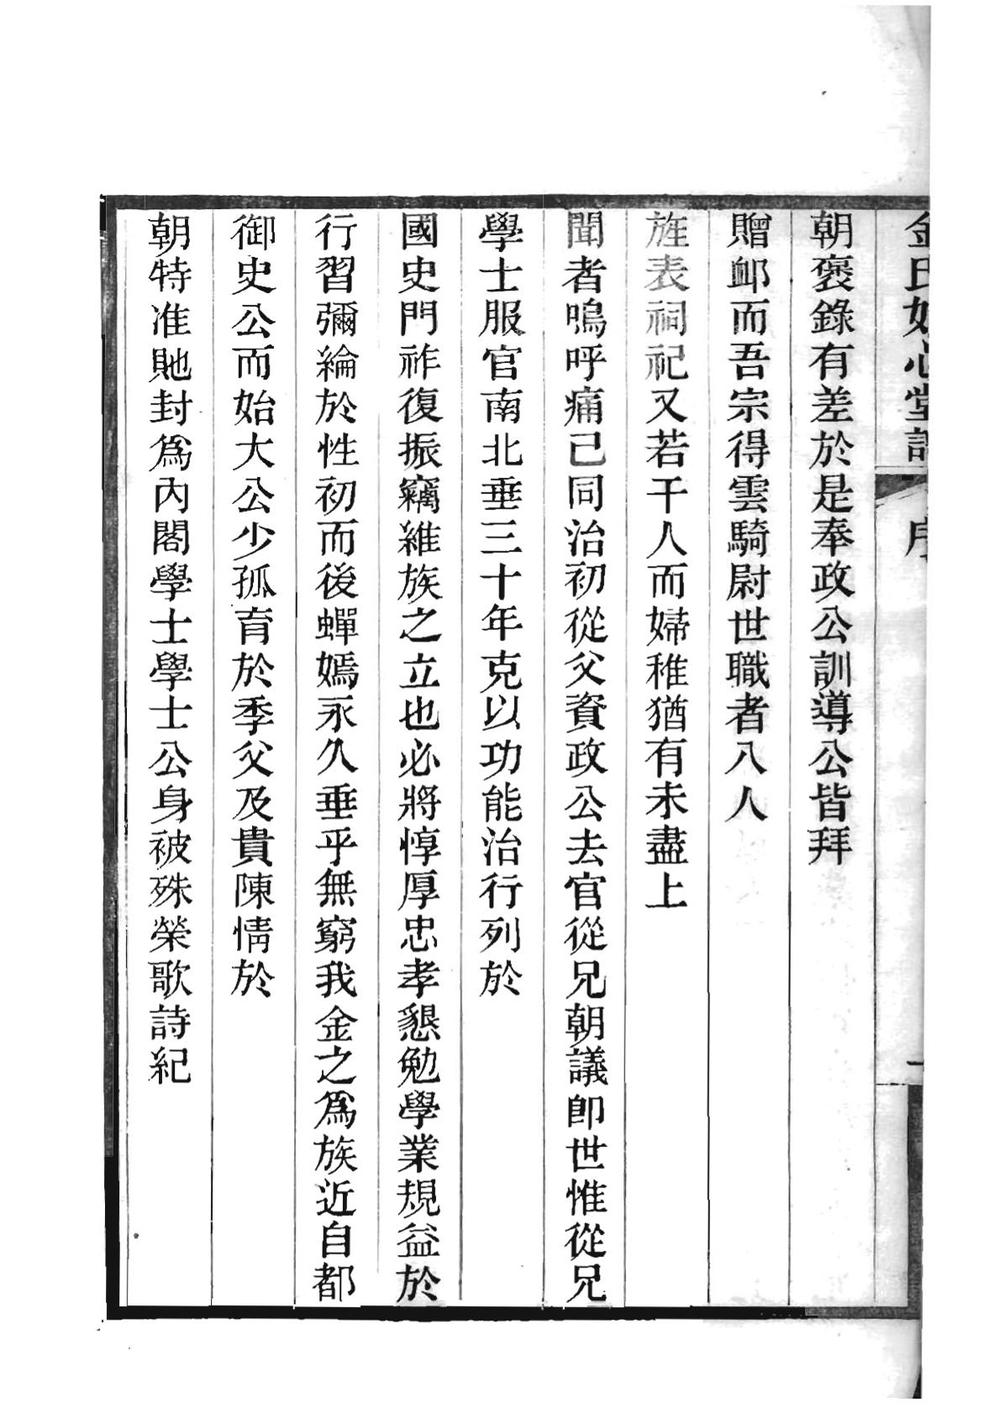 金氏如心堂譜 序 一
朝褒錄有差於是奉政公訓導公皆拜
贈卹而吾宗得雲騎尉世職者八人
旌表祠祀又若干人而婦稚猶有未盡上
聞者嗚呼痛已同治初從父資政公去官從兄朝議卽世惟從兄
學士服官南北垂三十年克以功能治行列於
國史門祚復振竊維族之立也必將惇厚忠孝懇勉學業規益於
行習彌綸於性初而後蟬嫣永久垂乎無窮我金之爲族近自都
御史公而始大公少孤育於季父及貴陳情於
朝特准貤封爲內閣學士學士公身被殊榮歌詩紀